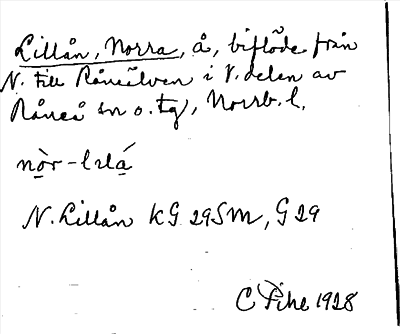 Lillån, Norra, å, biflöde från
N. till Råneälven i V. delen av
Råneå sn o. tg, Norrb. l.
nò̱r-lılá̱
N. Lillån KG 29SM, G 29
C Fihe 1928